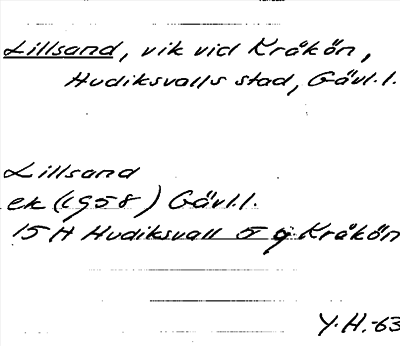 Lillsand, vik vid Kråkön,
Hudiksvalls stad, Gävl.l.
Lillsand
ek (1958) Gävl.l.
15 H Hudiksvall Kråkön
Y.H.-63